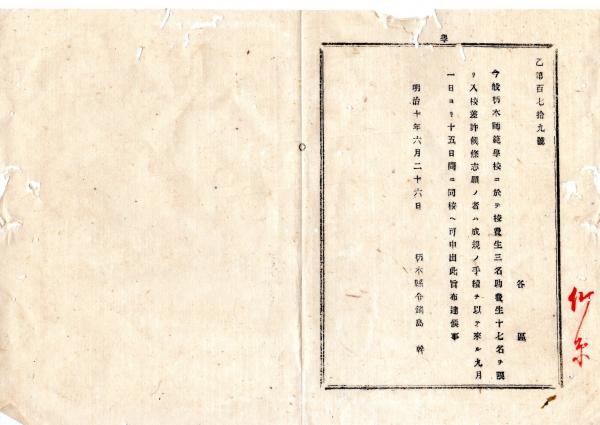 學
乙第百七拾九號
各區
今般栃木師範學校ニ於テ校費生三名助費生十七名ヲ限
リ入校差許候條志願ノ者ハ成規ノ手續ヲ以テ來ル九月
一日ヨリ十五日間ニ同校ヘ可申出此旨布達候事
明治十年六月二十六日
栃木縣令鍋島 幹